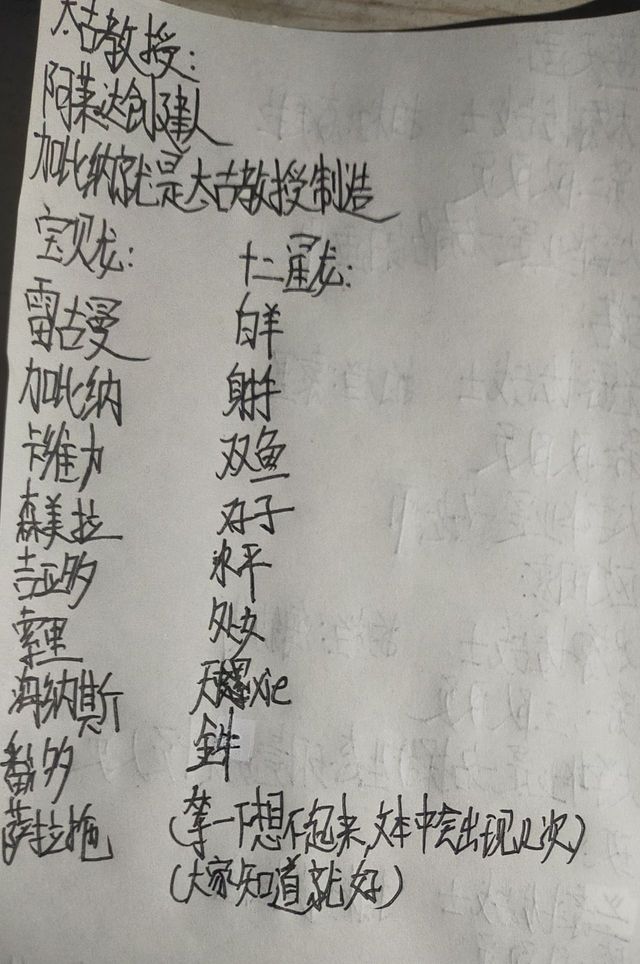 太吉教授：
阿莱达创建人
加比纳就是太吉教授制造
宝贝龙：
雷古曼
加比纳
卡维力
森美拉
吉亚多
索里
海纳斯
番多
萨拉拖
十二星龙：
白羊
射手
双鱼
双子
水平
处女
天螺xie
金牛
（等一下想不起来，文本中会出现几次）
（大家知道就好）